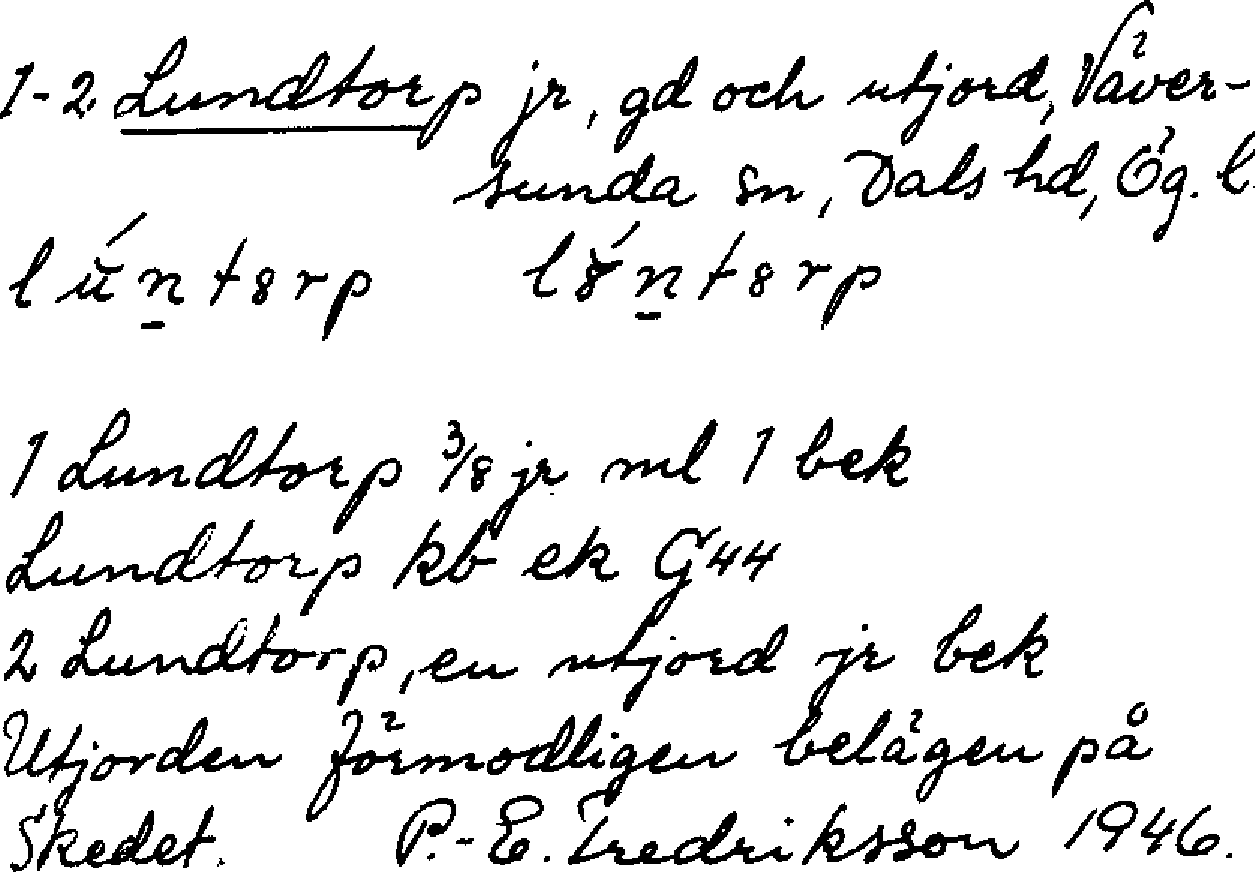 1-2 Lundtorp jr, gd och utjord, Väver-
sunda sn, Dals hd, Ög. l.
lú̈n̠t8rp l8́n̠t8rp
1 Lundtorp 3/8 jr ml 1 bek
Lundtorp kb ek G44
2 Lundtorp, en utjord jr bek
Utjorden förmodligen belägen på
Skedet. P.-E. Fredriksson 1946.